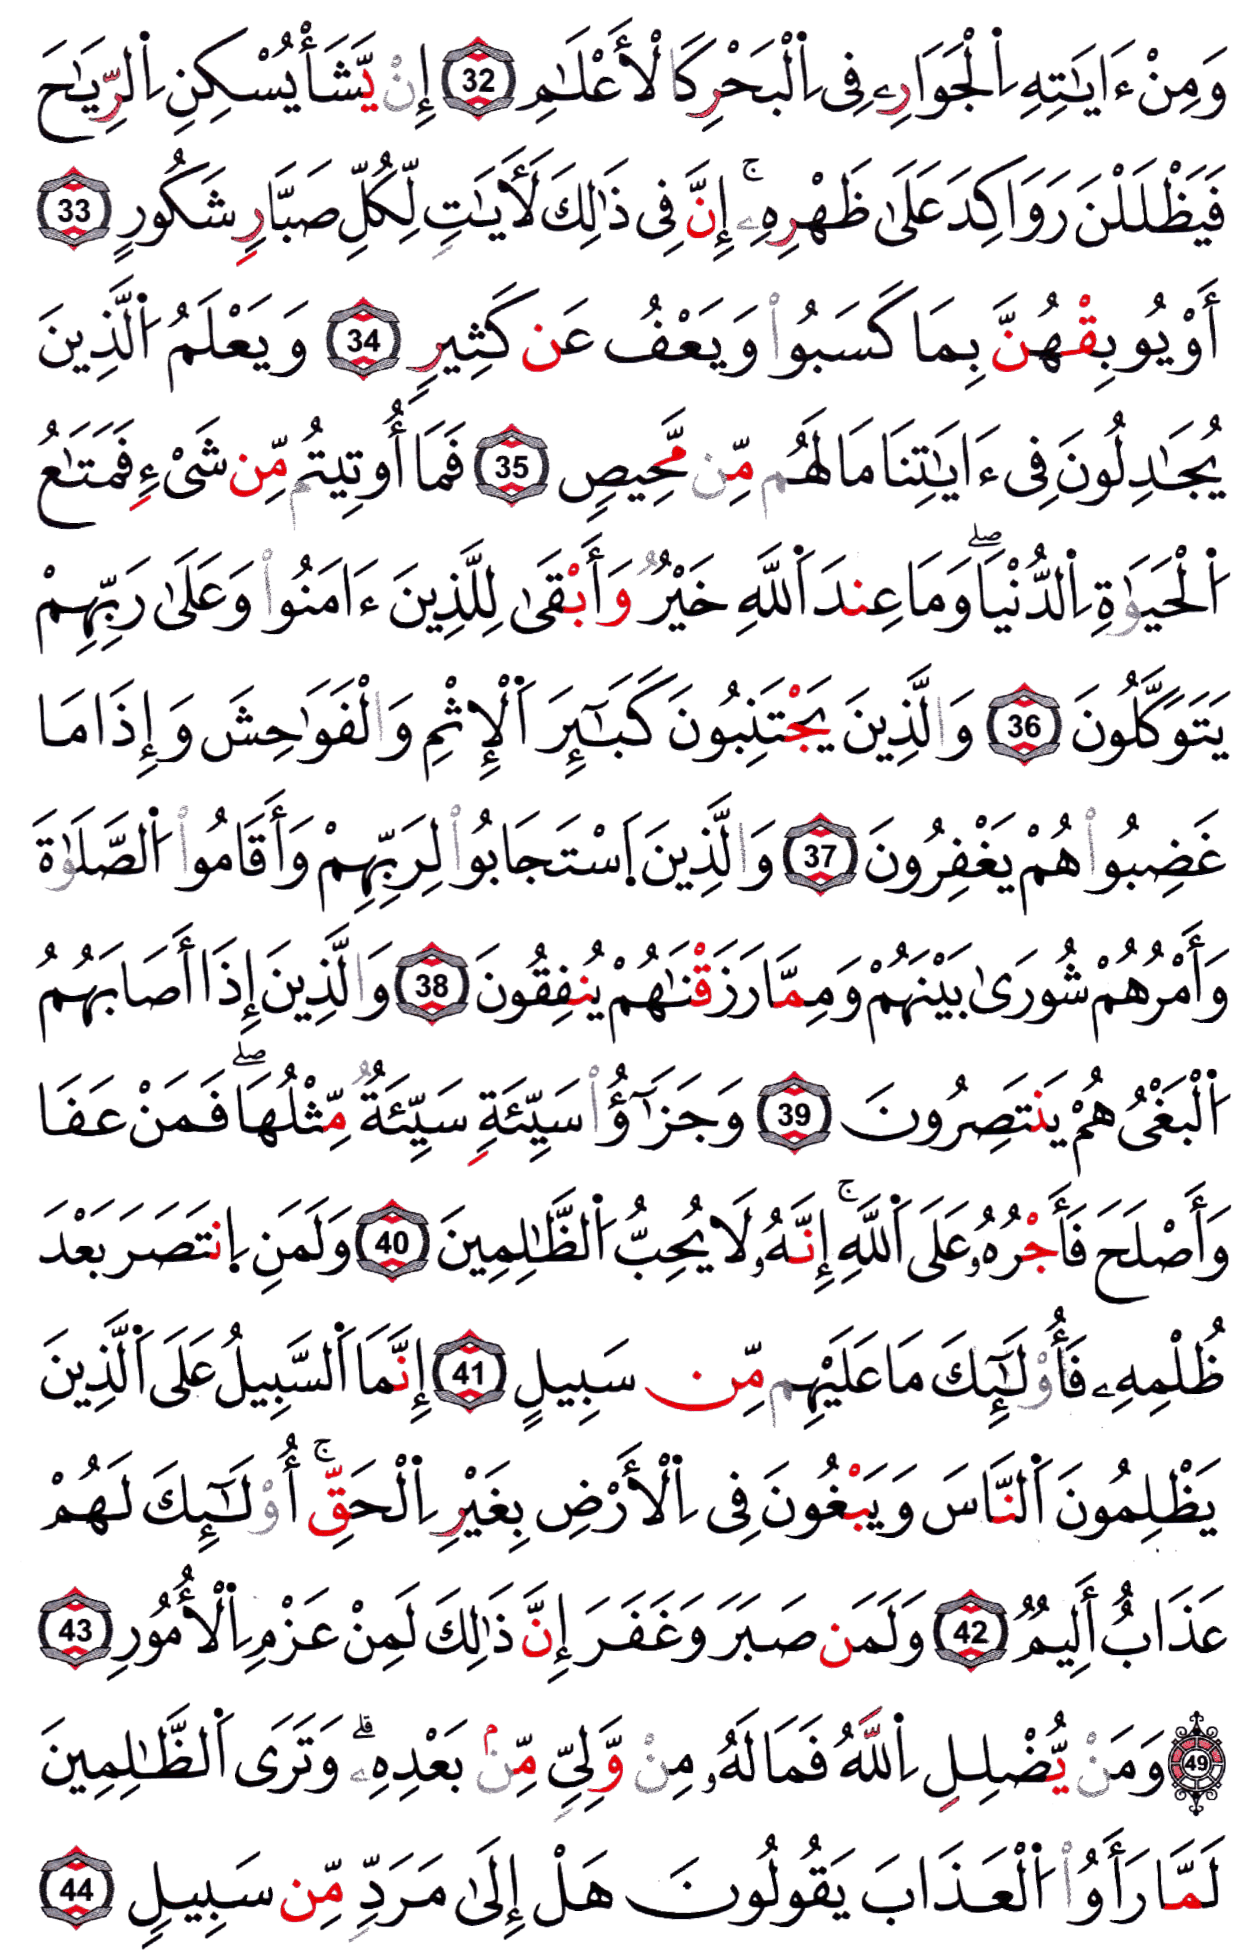 وَمِنْ ءَايَٰتِهِ اِ۬لْجَوَارِۦ فِى اِ۬لْبَحْرِ كَالْأَعْلَٰمِ 32 إِنْ يَّشَأْ يُسْكِنِ اِ۬لرِّيَٰحَ
فَيَظْلَلْنَ رَوَاكِدَ عَلَىٰ ظَهْرِهِۦٓۚ إِنَّ فِى ذَٰلِكَ لَأَيَٰتٍ لِّكُلِّ صَبَّارٍ شَكُورٍ 33
أَوْ يُوبِقْهُنَّ بِمَا كَسَبُواْ وَيَعْفُ عَن كَثِيرٍ 34 وَيَعْلَمُ اَ۬لَّذِينَ
يُجَٰدِلُونَ فِى ءَايَٰتِنَا مَا لَهُم مِّن مَّحِيصٍ 35 فَمَا أُوتِيتُم مِّن شَىْءٍ فَمَتَٰعُ
اُ۬لْحَيَوٰةِ اِ۬لدُّنْيَاۖ وَمَا عِندَ اَ۬للَّهِ خَيْرٌ وَأَبْقَىٰ لِلَّذِينَ ءَامَنُواْ وَعَلَىٰ رَبِّهِمْ
يَتَوَكَّلُونَ 36 وَالَّذِينَ يَجْتَنِبُونَ كَبَٰٓئِرَ اَ۬لْإِثْمِ وَالْفَوَٰحِشَ وَإِذَا مَا
غَضِبُواْ هُمْ يَغْفِرُونَ 37 وَالَّذِينَ اَ۪سْتَجَابُواْ لِرَبِّهِمْ وَأَقَامُواْ اُ۬لصَّلَوٰةَ
وَأَمْرُهُمْ شُورَىٰ بَيْنَهُمْ وَمِمَّا رَزَقْنَٰهُمْ يُنفِقُونَ 38 وَالَّذِينَ إِذَا أَصَابَهُمُ
اُ۬لْبَغْىُ هُمْ يَنتَصِرُونَ 39 وَجَزَٰٓؤُاْ سَيِّئَةٍ سَيِّئَةٌ مِّثْلُهَاۖ فَمَنْ عَفَا
وَأَصْلَحَ فَأَجْرُهُۥ عَلَى اَ۬للَّهِۚ إِنَّهُۥ لَا يُحِبُّ اُ۬لظَّٰلِمِينَ 40 وَلَمَنِ اِ۪نتَصَرَ بَعْدَ
ظُلْمِهِۦ فَأُوْلَٰٓئِكَ مَا عَلَيْهِم مِّن سَبِيلٍ 41 إِنَّمَا اَ۬لسَّبِيلُ عَلَى اَ۬لَّذِينَ
يَظْلِمُونَ اَ۬لنَّاسَ وَيَبْغُونَ فِى اِ۬لْأَرْضِ بِغَيْرِ اِ۬لْحَقِّۚ أُوْلَٰٓئِكَ لَهُمْ
عَذَابٌ أَلِيمٌ 42 وَلَمَن صَبَرَ وَغَفَرَ إِنَّ ذَٰلِكَ لَمِنْ عَزْمِ اِ۬لْأُمُورِ 43
49 وَمَنْ يُّضْلِلِ اِ۬للَّهُ فَمَا لَهُۥ مِنْ وَّلِيٍّ مِّنۢ بَعْدِهِۦۗ وَتَرَى اَ۬لظَّٰلِمِينَ
لَمَّا رَأَوُاْ اُ۬لْعَذَابَ يَقُولُونَ هَلْ إِلَىٰ مَرَدٍّ مِّن سَبِيلٍ 44